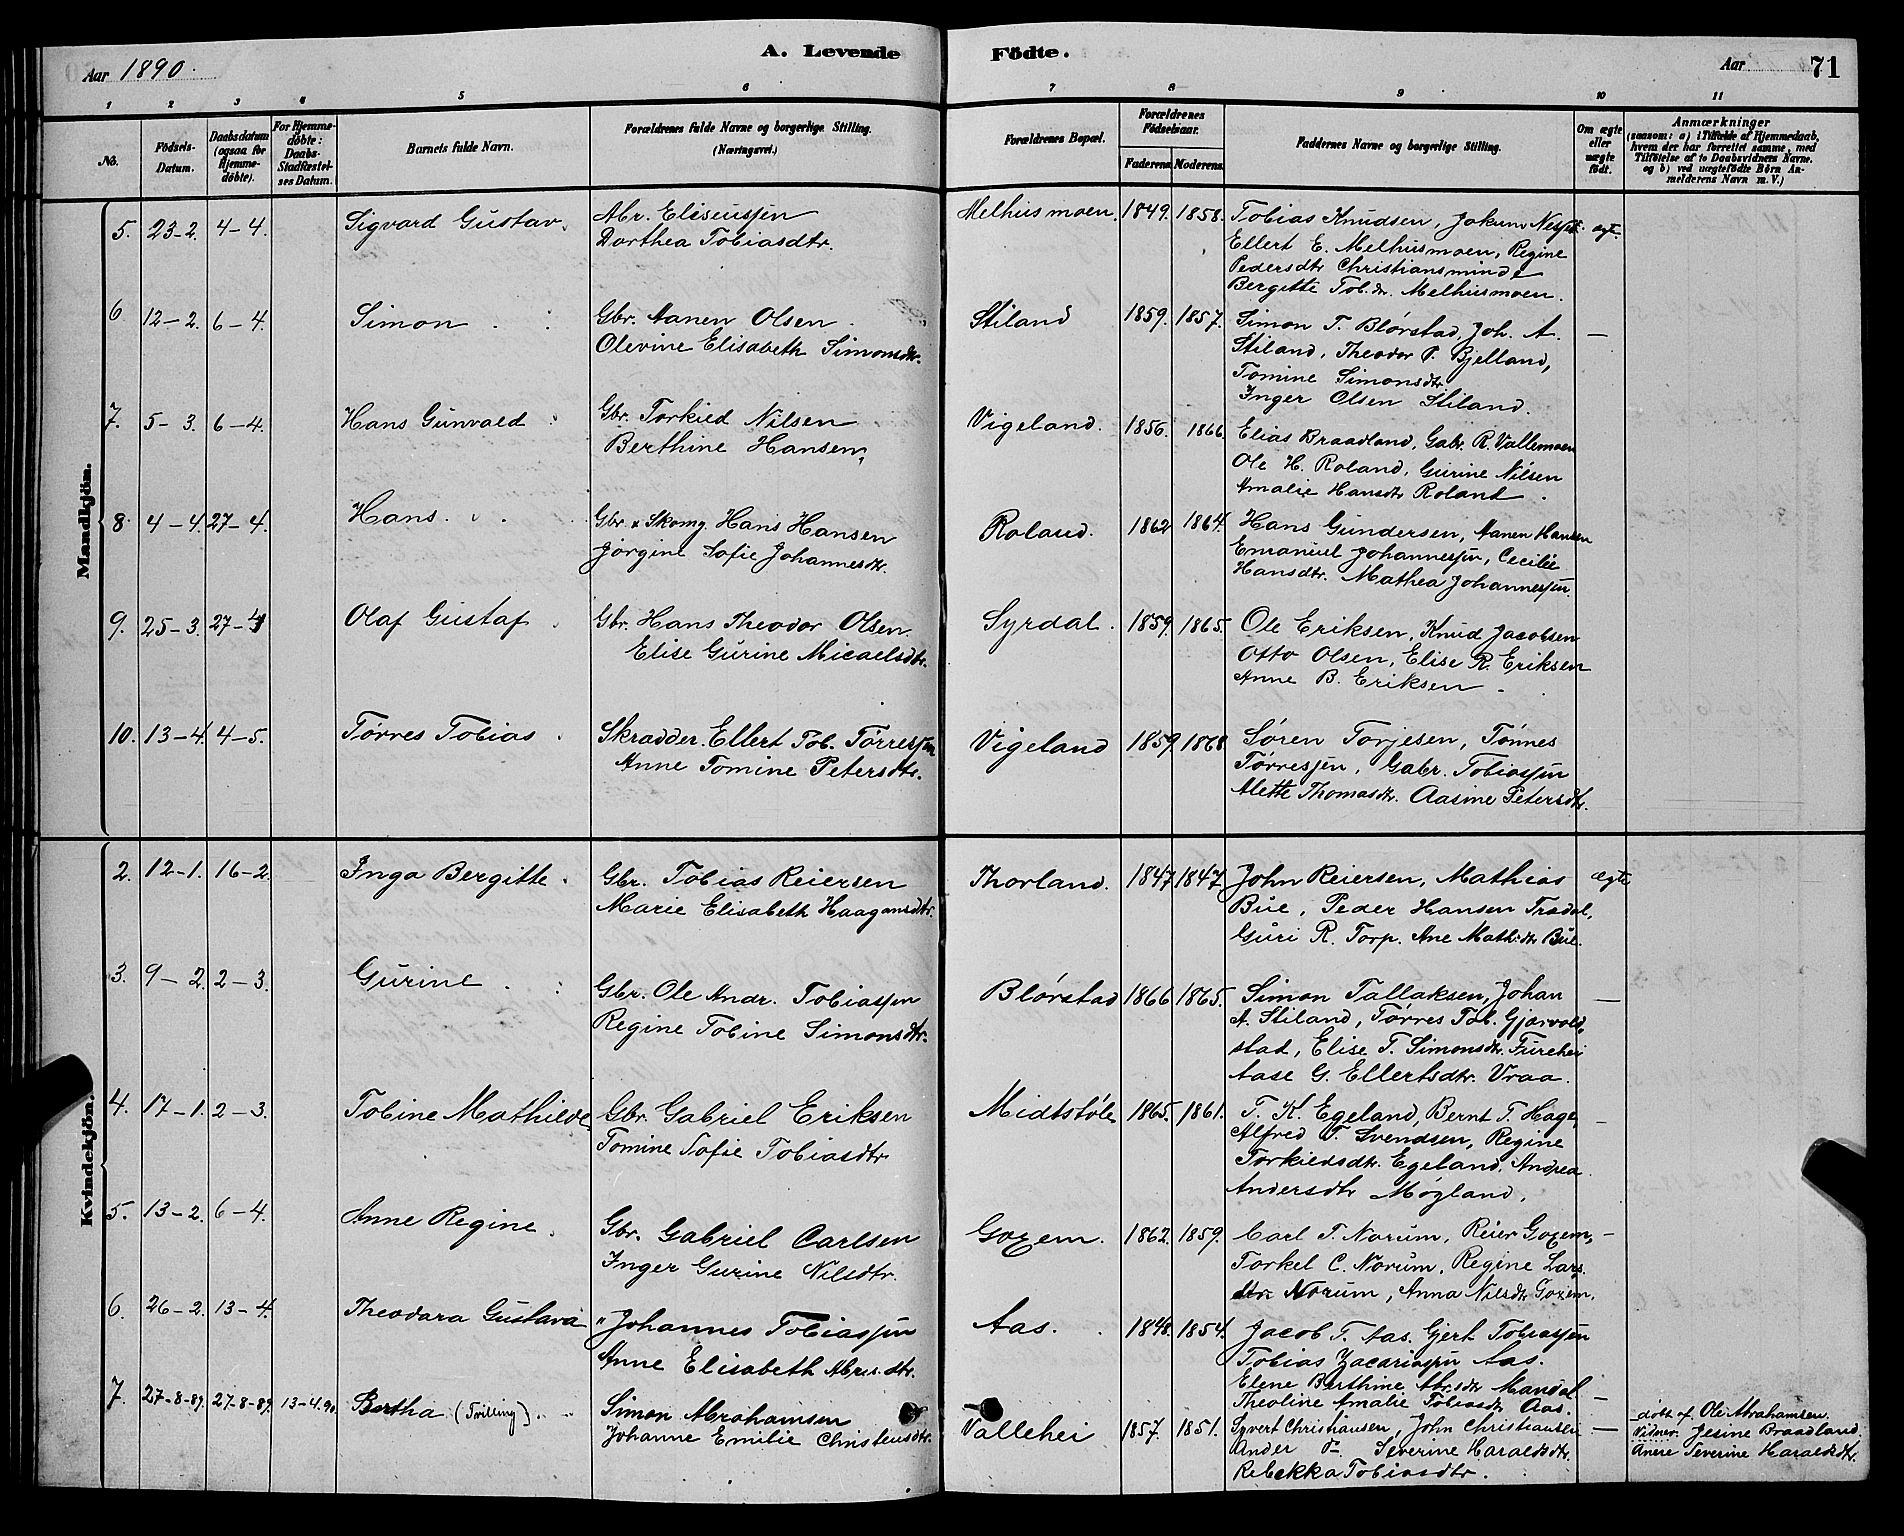 Aar 1890.
A. Levende Födte.
Aar 71
1 2 3 4 5 6 7 8 9 10 11
No.
Födsels-Datum.
Daabsdatum (ogsaa for Hjemme-døbte).
For Hjemme-døbte: Daabs-Stadfæstel-ses Datum.
Barnets fulde Navn.
Forældrenes fulde Navne og borgerlige Stilling. (Næringsvei.)
Forældrenes Bopæl.
Forældrenes Födselsaar.
Faderens. Moderens.
Faddernes Navne og borgerlige Stilling.
Om ægte eller uægte födt.
Anmærkninger (saasom: a) i Tilfælde af Hjemmedaab, hvem der har forrettet samme, med Tilföielse af to Daabsvidners Navne. og b) ved uægtefödte Børn An-melderens Navn m. V.)
Mandkjön.
5. 23-2. 4-4. Sigvard Gustav. Abr. Eliseussen Melhusmoen. 1849. 1858. Tobias Knudsen, Jokum Nesset. ægt.
Dorthea Tobiasdtr. Ellert E. Melhusmoen, Regine
Pedersdtr Christiansminde
Bergitte Tob.dr. Melhusmoen.
6. 12-2. 6-4. Simon. Gbr. Aanen Olsen Stiland 1859. 1857. Simon T. Blörstad, Joh. A. —
Olevine Elisabeth Simonsdtr. Stiland, Theodor P. Bjelland,
Tomine Simonsdtr
Inger Olsen Stiland.
7. 5-3. 6-4. Hans Gunvald Gbr. Torkied Nilsen Vigeland. 1856. 1866. Elias Braadland, Gabr. R. Vallemoen
Berthine Hansen, Ole H. Roland, Gurine Nilsen
Amalie Hansdtr Roland.
8. 4-4. 27-4. Hans. Gbr. & Skomg. Hans Hansen Roland. 1862 1864. Hans Gundersen, Aanen Hansen
Jørgine Sofie Johannesdtr. Emanuel Johannessen, Cecilie
Hansdtr. Mathea Johannessen.
9. 25-3. 27-4 Olaf Gustaf Gbr. Hans Theodor Olsen Syrdal. 1859. 1865. Ole Eriksen, Knud Jacobsen
Elise Gurine Micaelsdtr. Otto Olsen, Elise R. Eriksen
Anne B. Eriksen
10. 13-4. 4-5. Tørres Tobias. Skrædder. Ellert Tob. Tørressen Vigeland 1859. 1868. Søren Torjesen, Tönnes
Anne Tomine Petersdtr. Tørressen, Gabr. Tobiassen
Alette Thomasdtr. Aasine Petersdtr.
Kvindekjön.
2. 12-1. 16-2. Inga Bergitte. Gbr. Tobias Reiersen Thorland. 1847 1847 John Reiersen, Mathias ægte
Marie Elisabeth Haagensdtr. Bue, Peder Hansen Trædal,
Guri R. Torp. Ane Mathsdtr Bue.
3. 9-2. 2-3. Gurine. Gbr. Ole Andr. Tobiassen Blörstad 1866 1865. Simon Tallaksen, Johan —
Regine Tobine Simonsdtr. A. Stiland, Tørres Tob. Gjervold-
stad, Elise T. Simonsdtr. Furehei
Aase G. Ellertsdtr. Vraa.
4. 17-1. 2-3. Tobine Mathilde Gbr. Gabriel Eriksen Midtstöle 1865. 1861. T. K. Egeland, Bernt T. Hage, —
Tomine Sofie Tobiasdtr Alfred T. Svendsen, Regine
Torkieldsdtr. Egeland, Andrea
Andersdtr Møgland,
5. 13-2. 6-4. Anne Regine. Gbr. Gabriel Carlsen Goxem. 1862. 1859. Carl T. Norum, Reier Goxem, —
Inger Gurine Nilsdtr. Torkel C. Norum, Regine Lars-
dtr Norum, Anna Nilsdtr Goxem.
6. 26-2. 13-4. Theodara Gustava " Johannes Tobiassen Aas. 1848. 1854. Jacob T. Aas. Gjert Tobiassen
Anne Elisabeth Abr.s.dtr. Tobias Zacariassen Aas.
Elene Berthine Abr.sdtr Mandal —
Theoline Amalie Tobiasdtr Aas.
7. 27-8-89. 27-8-89. 13-4.90. Bertha (Tvilling). Simon Abrahamsen Vallehei 1857. 1851. Syvert Christiansen, John Christiansen — døbt af Ole Abrahamsen.
Johanne Emilie Christensdtr. Ander do Severine Haraldsdtr. Vidner. Jesine Braadland,
Rebekka Tobiasdtr. Anne Severine Haraldsdtr.